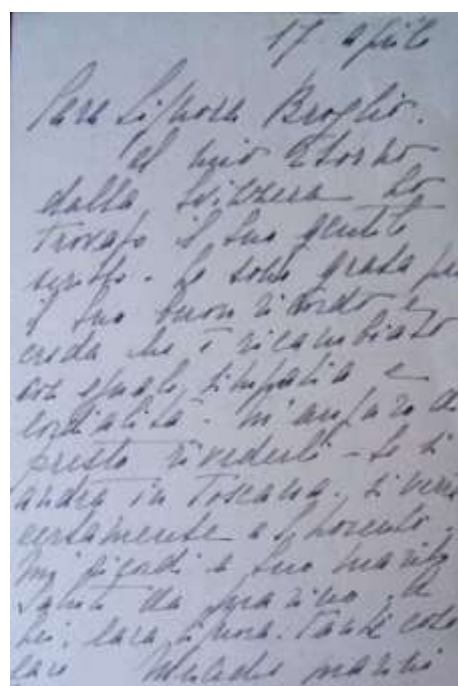 17 aprile
Cara Signora Broglio.
al mio ritorno
dalla Svizzera ho
trovato il suo gentile
scritto. Le sono grata per
il suo buon ricordo e
creda che è ricambiato
con eguale simpatia e
cordialità. M'auguro di
presto rivederli - Se si
andrà in Toscana, si verrà
certamente a
Mi ricordi a suo marito
Saluti da marino. A
lei, cara signora. Tante cose
care marini